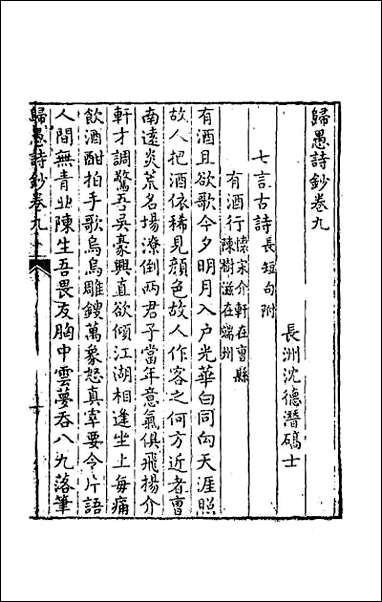 歸愚詩鈔卷九
長洲沈德潛碻士
七言古詩長短句附
有酒行懷宋介軒在曹縣陳樹滋在端州
有酒且欲歌今夕明月入户光華白同向天涯照
故人把酒依稀見顏色故人作客之何方近者曹
南遠炎荒名場潦倒兩君子當年意氣俱飛揚介
軒才調驚吾吳豪興直欲傾江湖相逢坐上每痛
飲酒酣拍手歌烏烏雕鎪萬象怒真宰要令片語
人間無青丘陳生吾畏友胸中雲夢吞八九落筆
歸愚詩鈔卷九